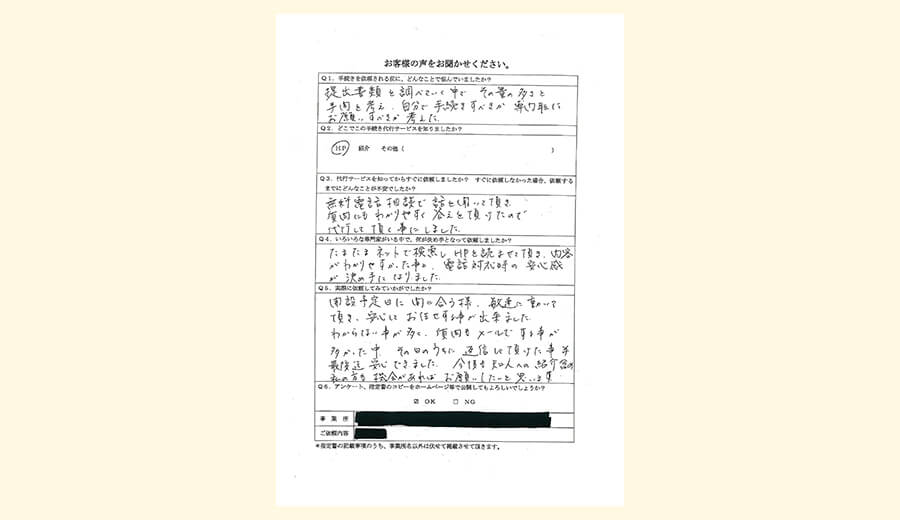 お客様の声をお聞かせください。
Q1．手続きを依頼される前に、どんなことで悩んでいましたか？
提出書類を調べていく中で その量の多さと
手間を考え、自分で手続きすべきか 専門職に
お願いすべきか 考えた。
Q2．どこでこの手続き代行サービスを知りましたか？
HP 紹介 その他（ ）
Q3．代行サービスを知ってからすぐに依頼しましたか？ すぐに依頼しなかった場合、依頼する
までにどんなことが不安でしたか？
無料電話相談で 話を聞いて頂き
質問にもわかりやすく 答えを頂けたので
代行して頂く事にしました。
Q4．いろいろな専門家がいる中で、何が決め手となって依頼しましたか？
たまたまネットで検索し HPを読ませて頂き、内容
がわかりやすかった事と、電話対応時の 安心感
が 決め手になりました。
Q5．実際に依頼してみていかがでしたか？
開設予定日に 間に合う様、敏速に動いて
頂き、安心して お任せする事が出来ました。
わからない事が多く、質問をメールでする事が
多かった中、その日のうちに 返信して頂けた事等
最後迄 安心できました。今後も知人への紹介
私の方も 機会があれば お願いしたいと思います
Q6．アンケート、指定書のコピーをホームページ等で公開してもよろしいでしょうか？
☑ OK □ NG
事業所
ご依頼内容
※指定書の記載事項のうち、事業所名以外は伏せて掲載させて頂きます。